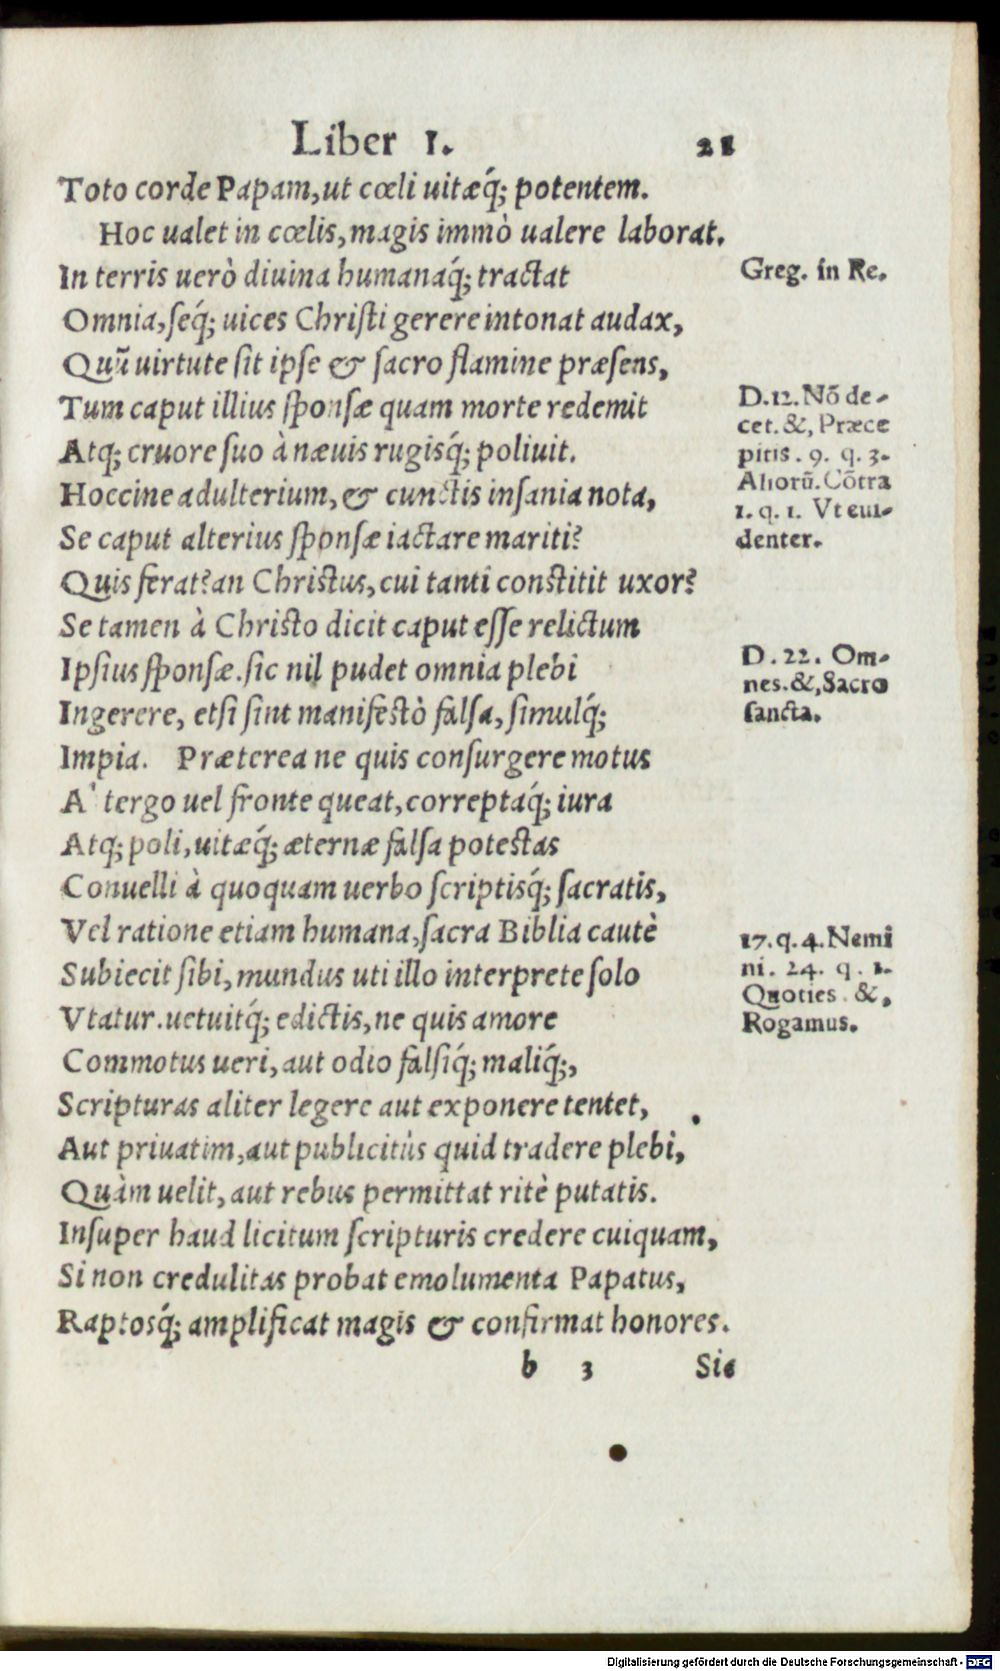 Liber I. 21
Toto corde Papam, ut cœli uitæq́; potentem.
Hoc ualet in cœlis, magis immò ualere laborat.
In terris uerò diuina humanaq́; tractat
Omnia, ſeq́; uices Chriſti gerere intonat audax,
Quũ uirtute ſit ipſe & ſacro flamine præſens,
Tum caput illius ſponſæ quam morte redemit
Atq; cruore ſuo à næuis rugisq́; poliuit.
Hoccine adulterium, & cunctis inſania nota,
Se caput alterius ſponſæ iactare mariti?
Quis ferat? an Christus, cui tanti constitit uxor?
Se tamen à Christo dicit caput eſſe relictum
Ipſius ſponſæ. ſic nil pudet omnia plebi
Ingerere, etſi ſint manifestò falſa, ſimulq́;
Impia. Præterea ne quis conſurgere motus
A' tergo uel fronte queat, correptaq́; iura
Atq; poli, uitæq́; æternæ falſa potestas
Conuelli à quoquam uerbo ſcriptisq́; ſacratis,
Vel ratione etiam humana, ſacra Biblia cautè
Subiecit ſibi, mundus uti illo interprete ſolo
Vtatur. uetuitq́; edictis, ne quis amore
Commotus ueri, aut odio falſiq́; maliq́;,
Scripturas aliter legere aut exponere tentet,
Aut priuatim, aut publicitùs quid tradere plebi,
Quàm uelit, aut rebus permittat ritè putatis.
Inſuper haud licitum ſcripturis credere cuiquam,
Si non credulitas probat emolumenta Papatus,
Raptosq́; amplificat magis & confirmat honores.
b 3 Sic
Greg. in Re.
D.12. Nõ de-
cet. &, Præce
pitis. 9. q. 3.
Aliorũ. Cõtra
1. q. 1. Vt eui-
denter.
D. 22. Om-
nes. &, Sacro
ſancta.
17. q. 4. Nemi
ni. 24. q. 1.
Quoties. &,
Rogamus.
Digitalisierung gefördert durch die Deutsche Forschungsgemeinschaft - DFG